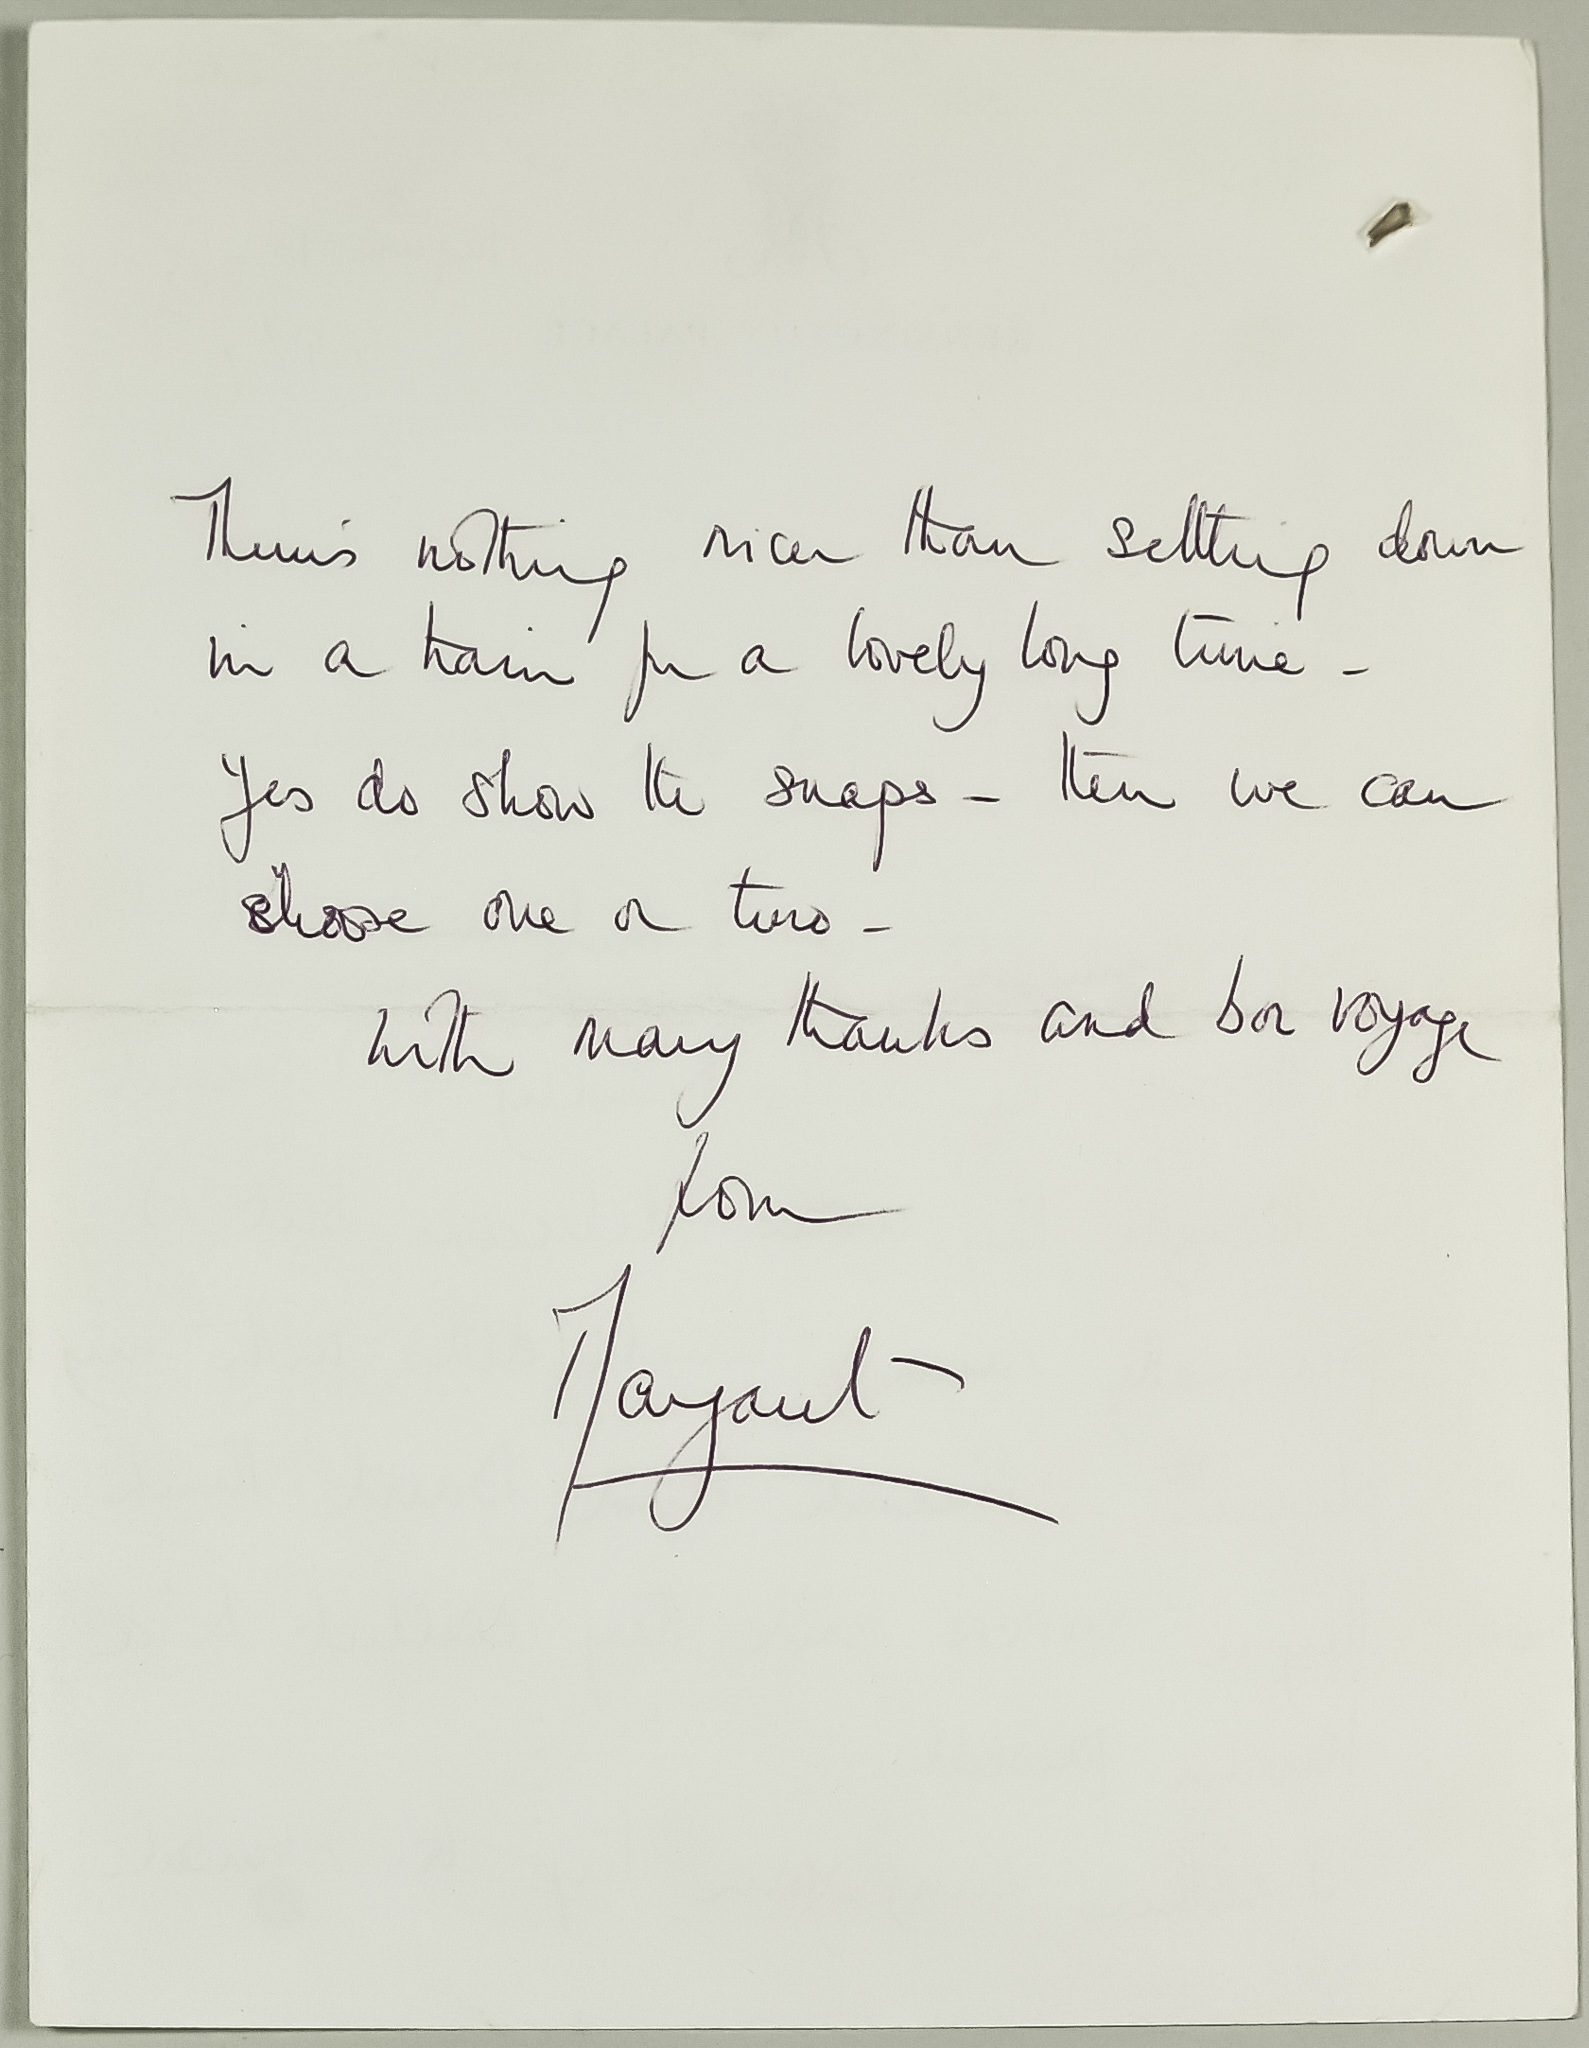 There's nothing nicer than settling down
in a train for a lovely long time -
Yes do show the snaps - then we can
choose one or two -
With many thanks and bon voyage
from
Margaret